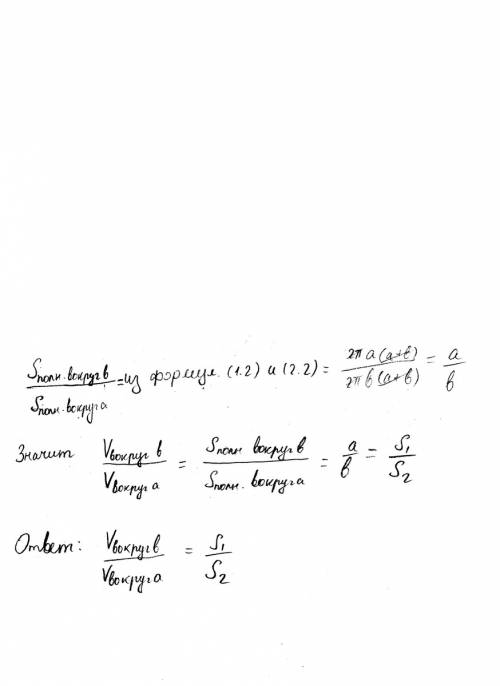 Sполн. вокруг в / Sполн. вокруг а = из формул (1.2) и (2.2) = 2πa(a+в) / 2πв(a+в) = a / в
Значит Vвокруг в / Vвокруг а = Sполн вокруг в / Sполн. вокруг а = a / в = S₁ / S₂
Ответ: Vвокруг в / Vвокруг а = S₁ / S₂